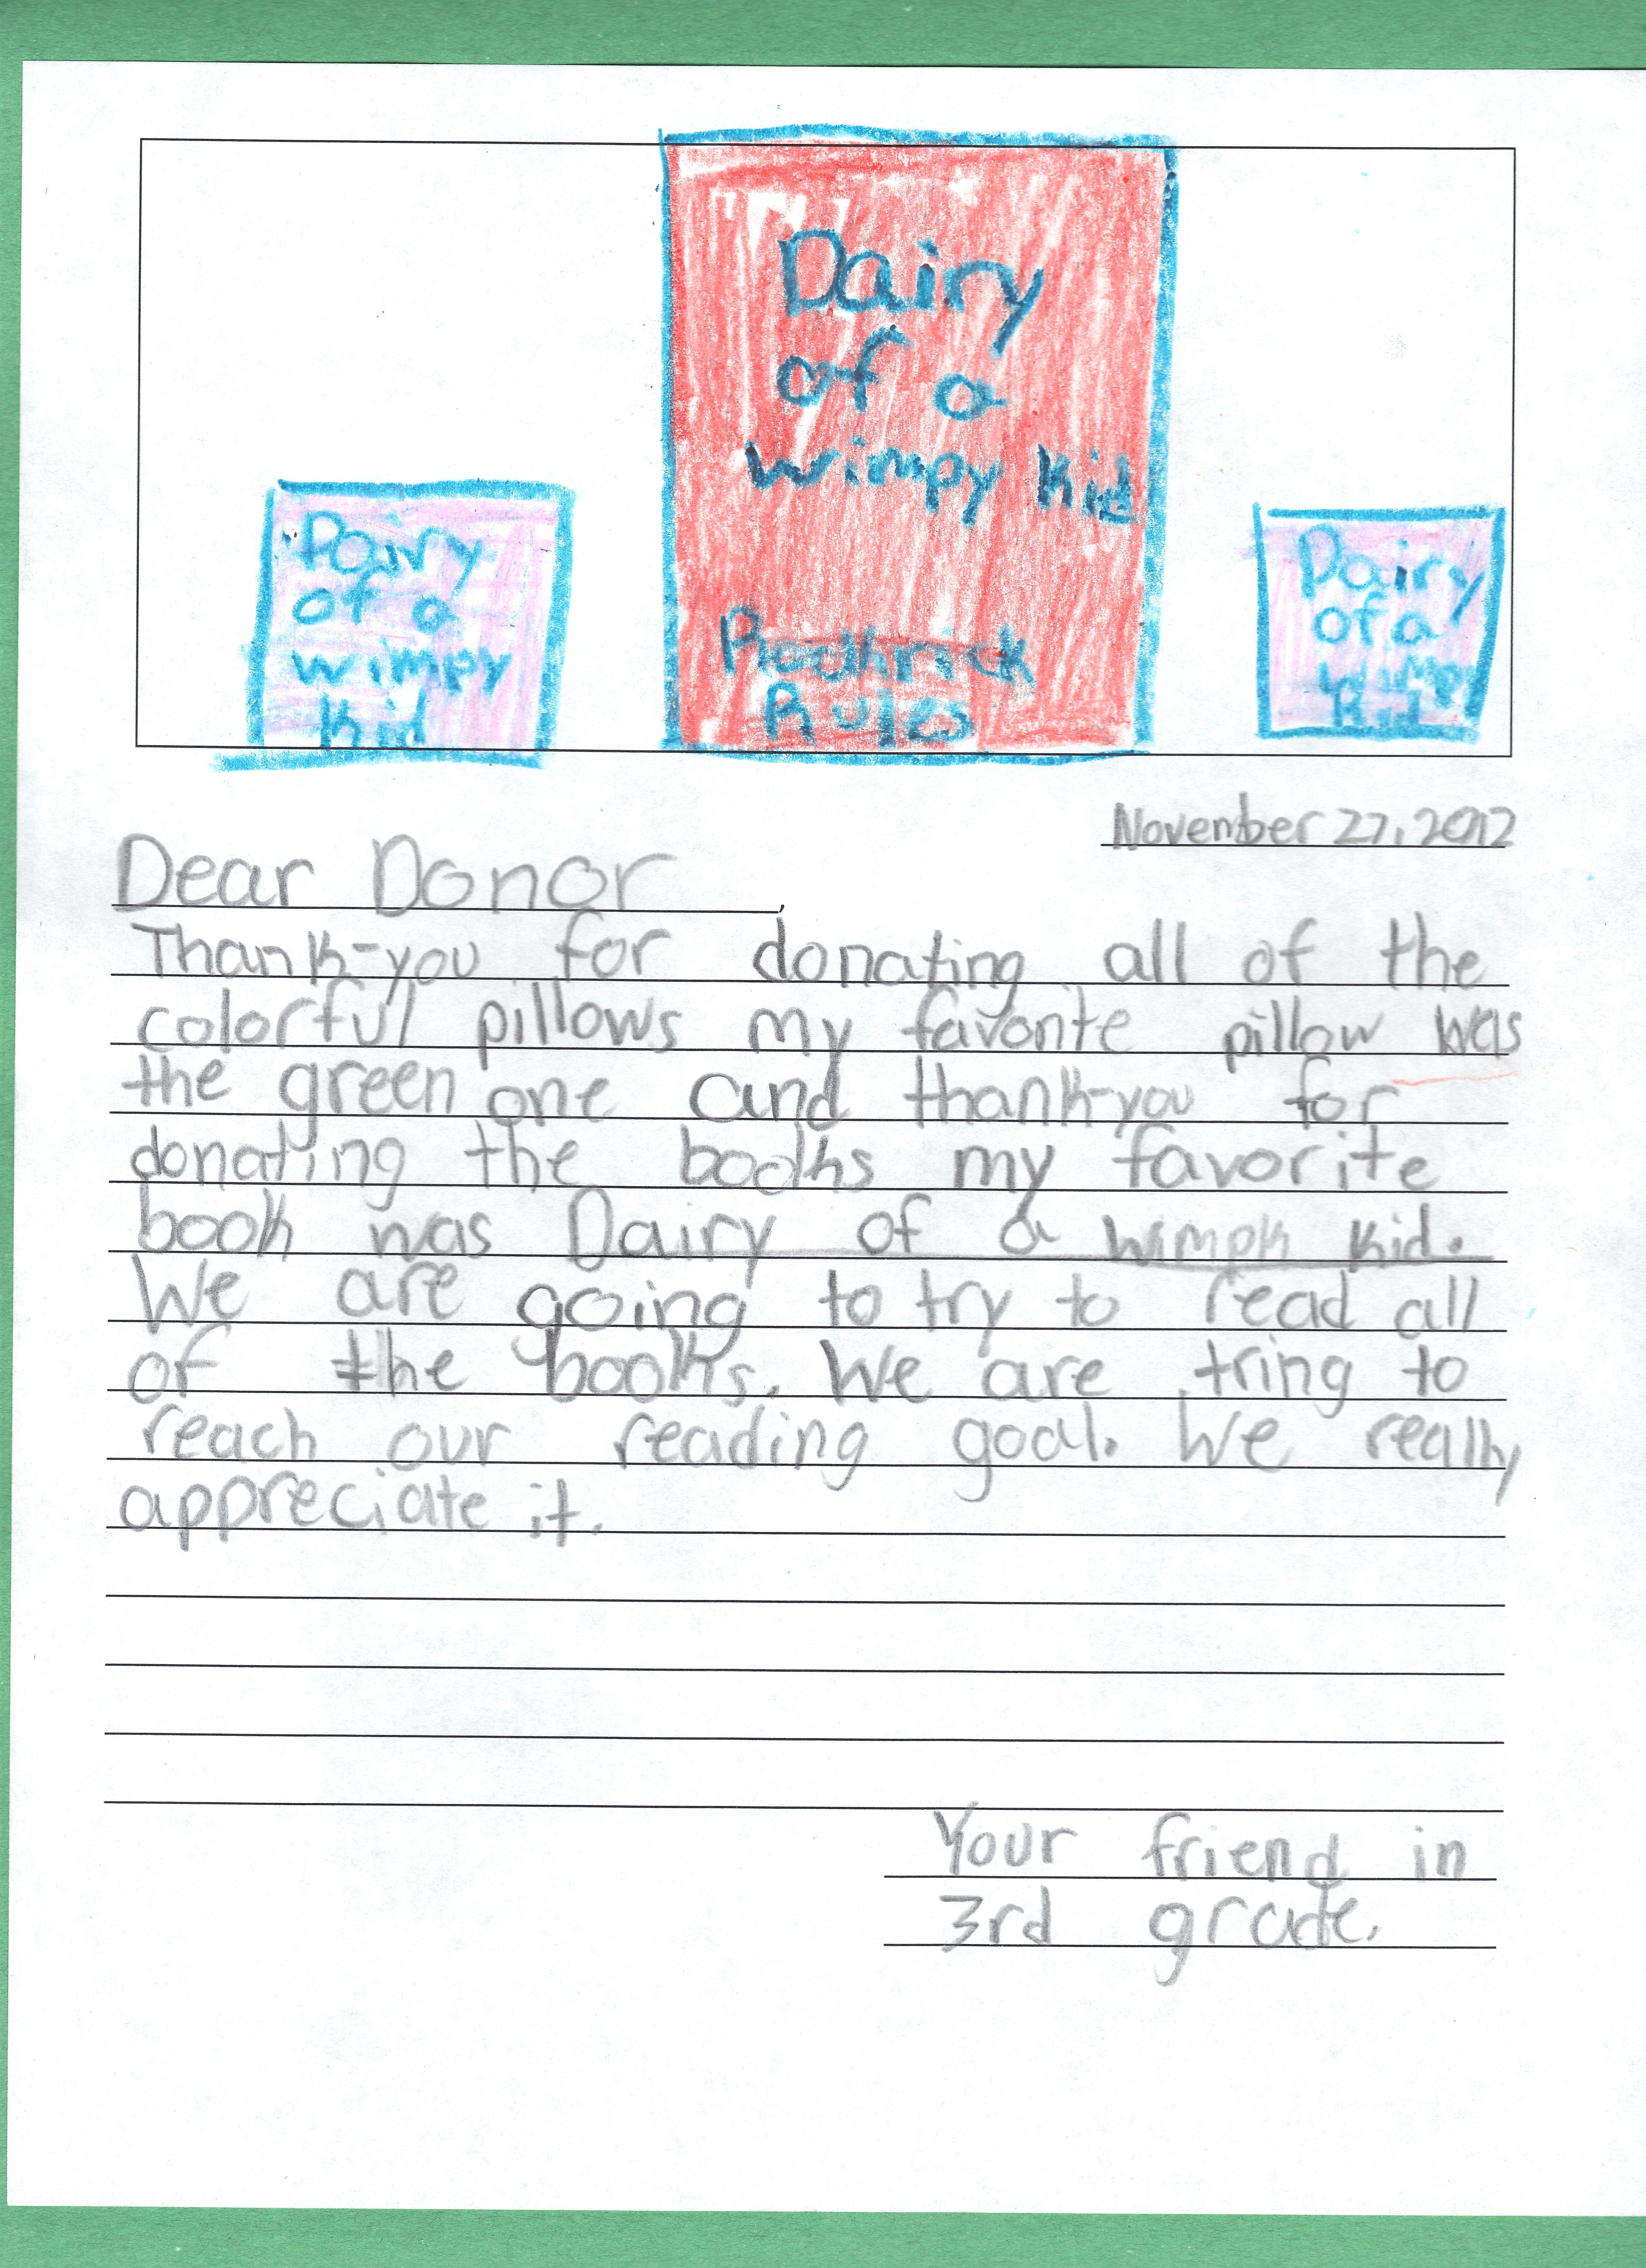 Dairy
of a
wimpy Kid
Rodhrick
Rules
Dairy
of a
wimpy
Kid
Dairy
of a
wimpy
Kid
November 27, 2012
Dear Donor,
Thank-you for donating all of the
colorful pillows my favorite pillow was
the green one and thank-you for
donating the books my favorite
book was Dairy of a wimpk kid.
We are going to try to read all
of the books. We are tring to
reach our reading goal. We really
appreciate it.
Your friend in
3rd grade.